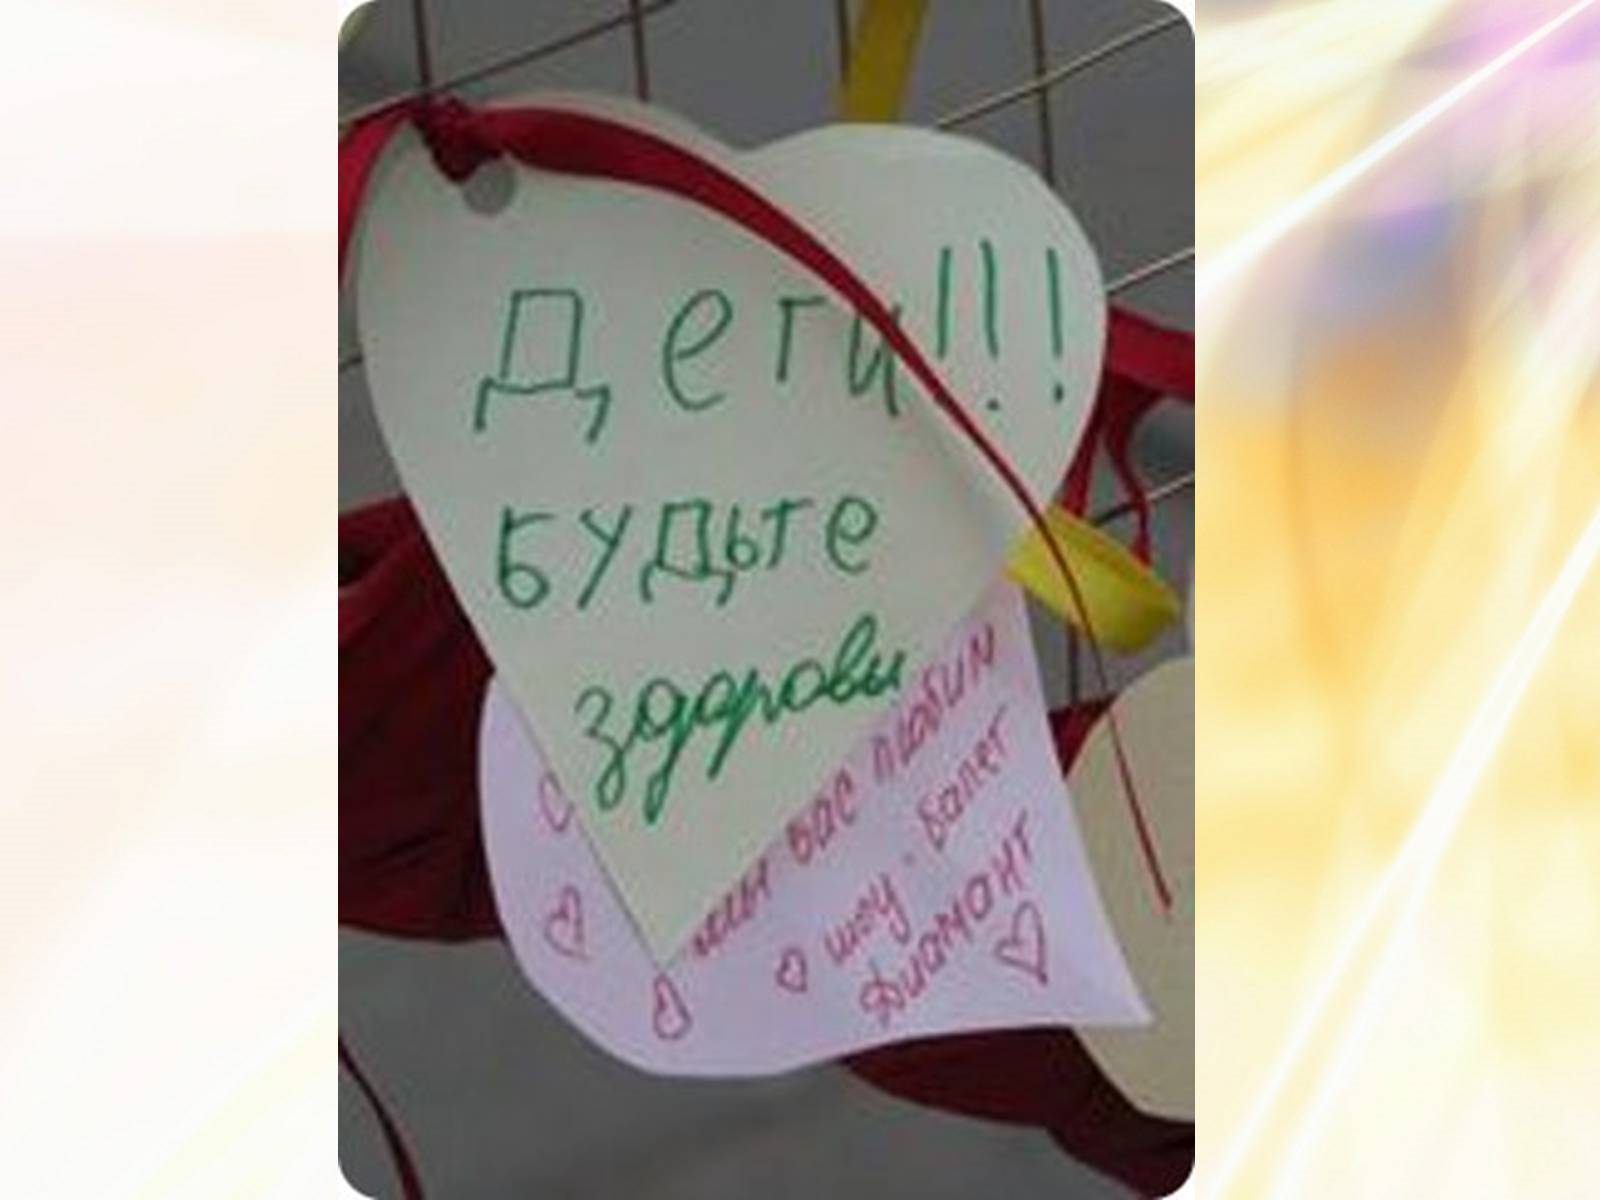 Дети!!!
будьте
здоровы
мы вас любим
шоу-балет
Диамант